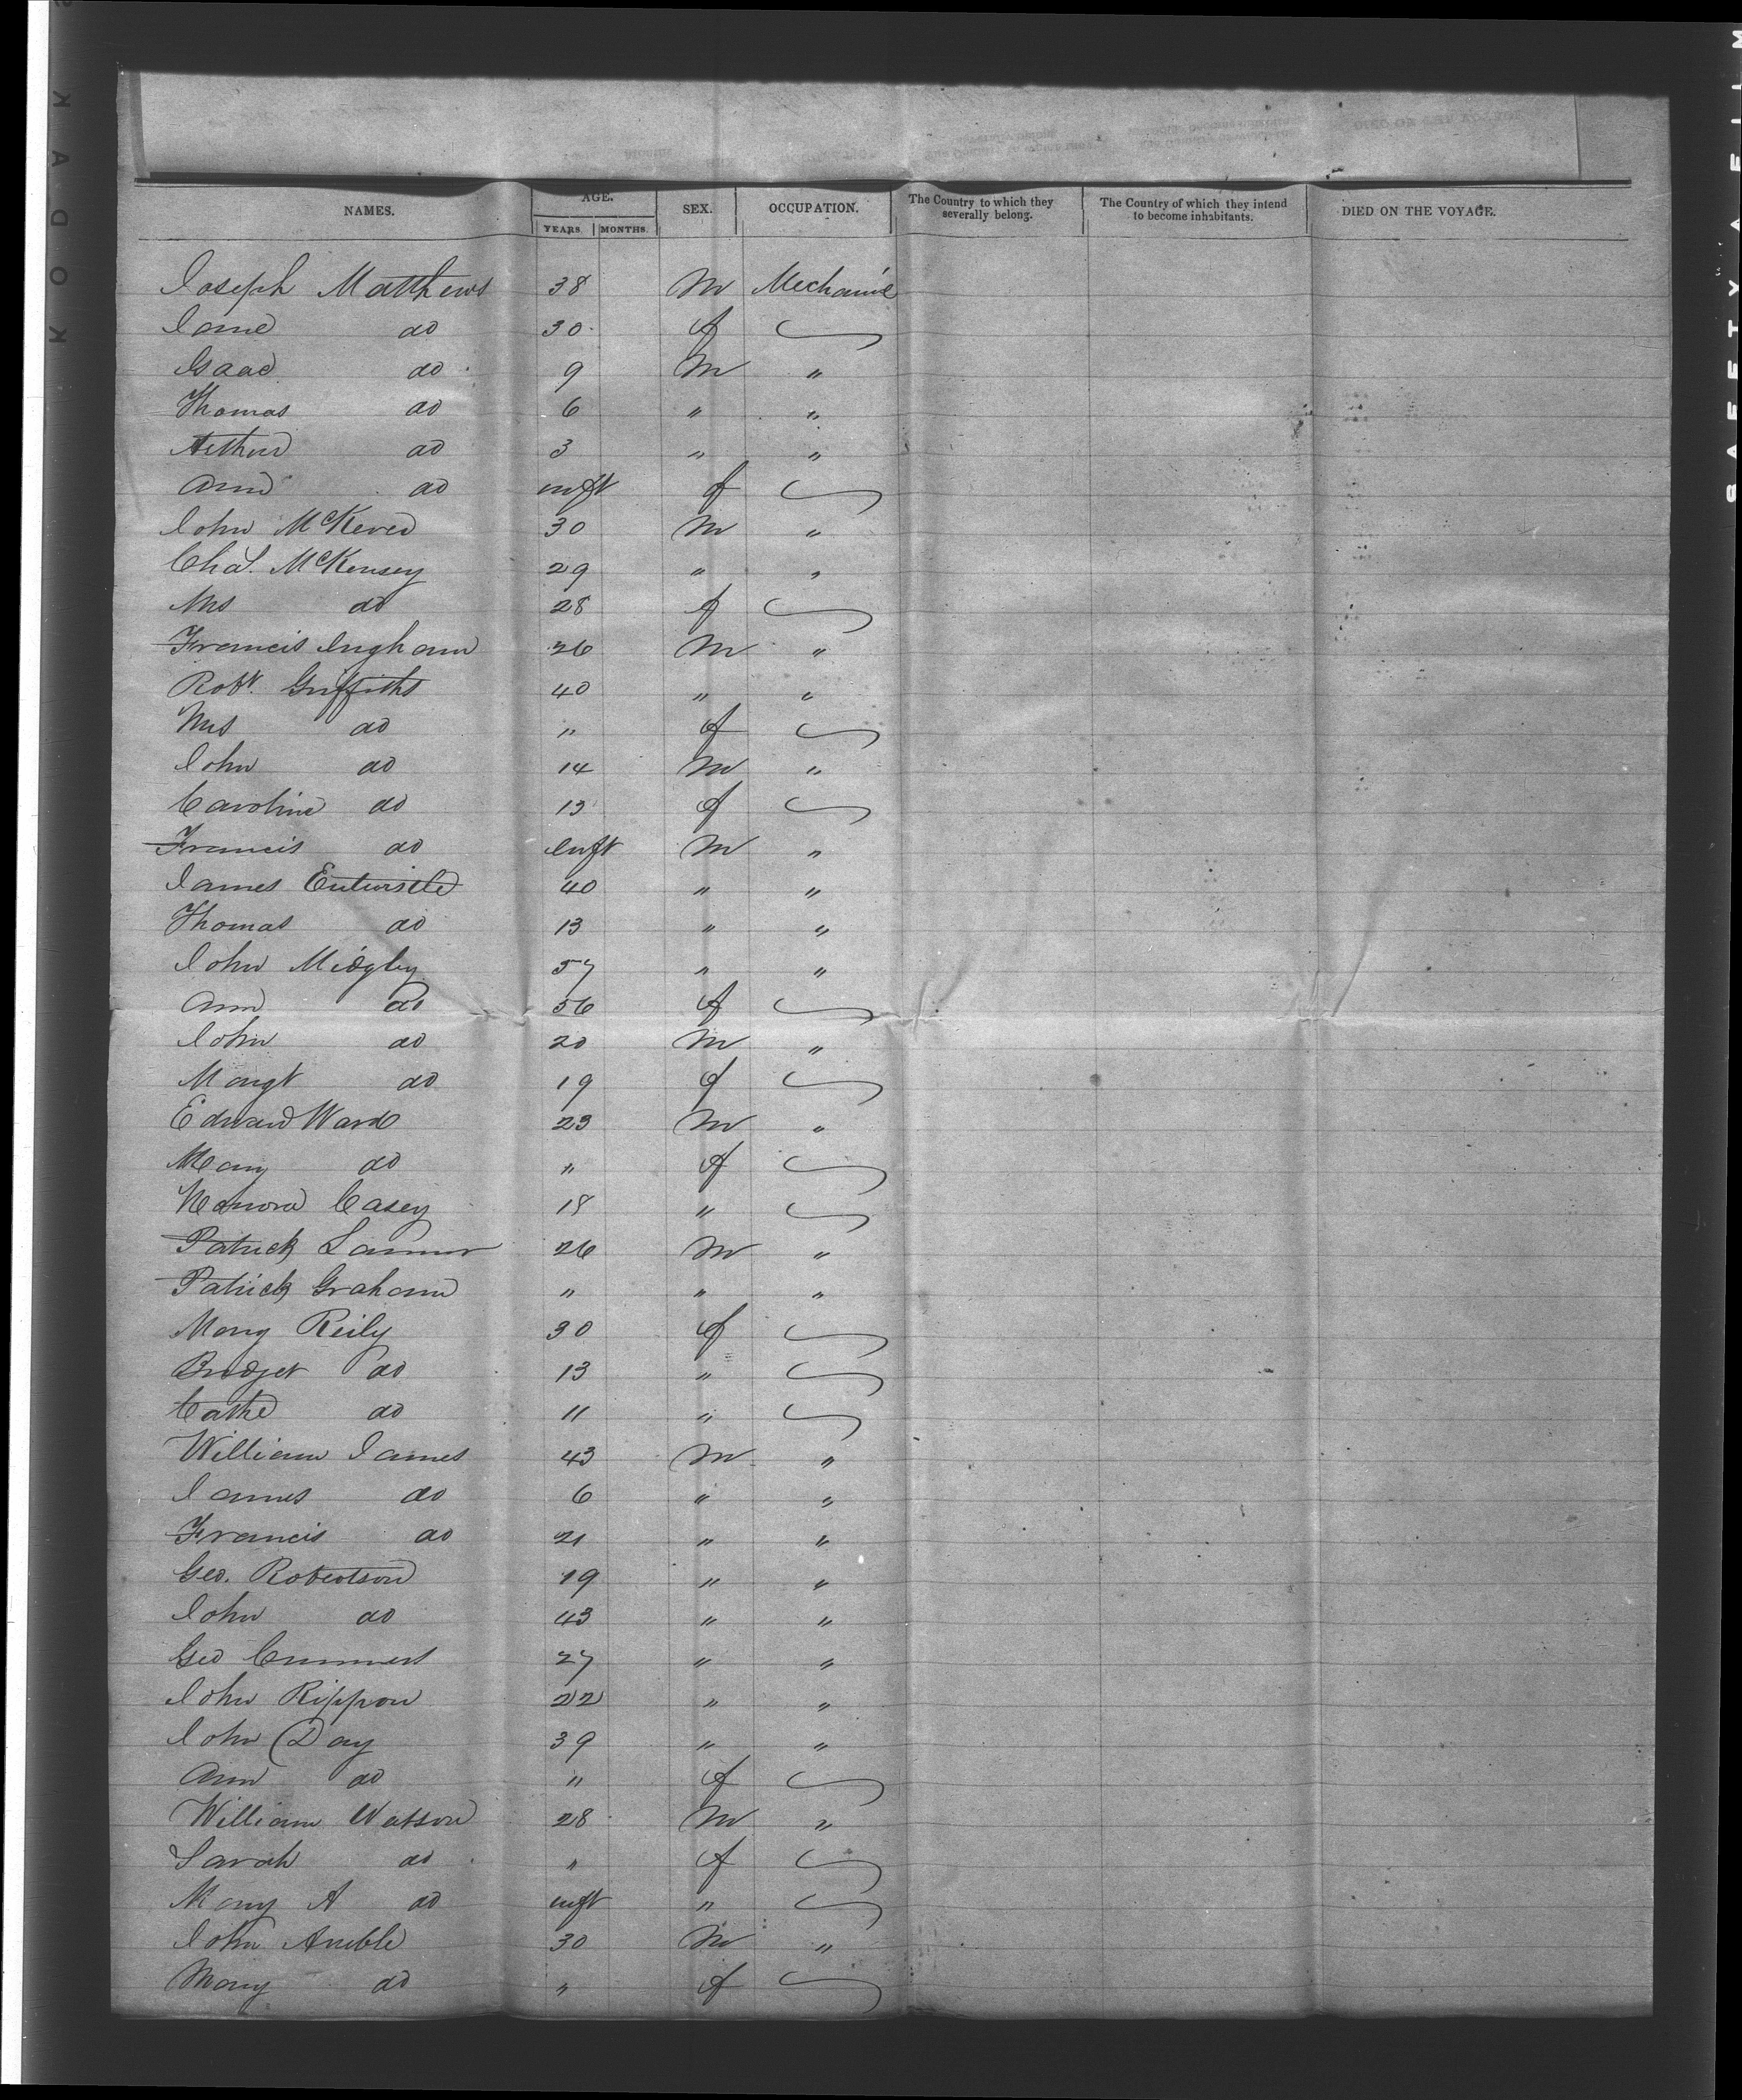 NAMES. AGE. YEARS. MONTHS. SEX. OCCUPATION. The Country to which they severally belong. The Country of which they intend to become inhabitants. DIED ON THE VOYAGE.
Joseph Matthews 38 M Mechanic
Jane do 30 f
Isaac do 9 M "
Thomas do 6 " "
Arthur do 3 " "
Ann do inft f
John McKever 30 M "
Chas. McKensey 29 " "
Mrs do 28 f
Francis Ingham 26 M "
Robt. Griffiths 40 " "
Mrs do " f
John do 14 M "
Caroline do 13 f
Francis do Inft M "
James Entwistle 40 " "
Thomas do 13 " "
John Midgley 57 " "
Ann do 56 f
John do 20 M "
Margt do 19 f
Edward Ward 23 M "
Mary do " f
Honora Casey 18 "
Patrick 26 M "
Patrick Graham " " "
Mary Reily 30 f
Bridget do 13 "
Cathe do 11 "
William James 43 M "
James do 6 " "
Francis do 21 " "
Geo. Robertson 19 " "
John do 43 " "
Geo 27 " "
John Rippon 22 " "
John Day 39 " "
Ann do " f
William Watson 28 M "
Sarah do " f
Mary A do inft "
John Amble 30 M "
Mary do " f
KODAK
SAFETY